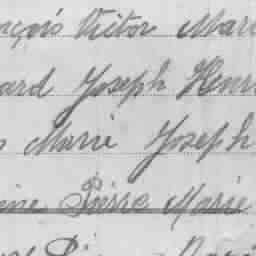 ançois Victor Mari
ard Joseph Henri
Marie Joseph
ine Pierre Marie